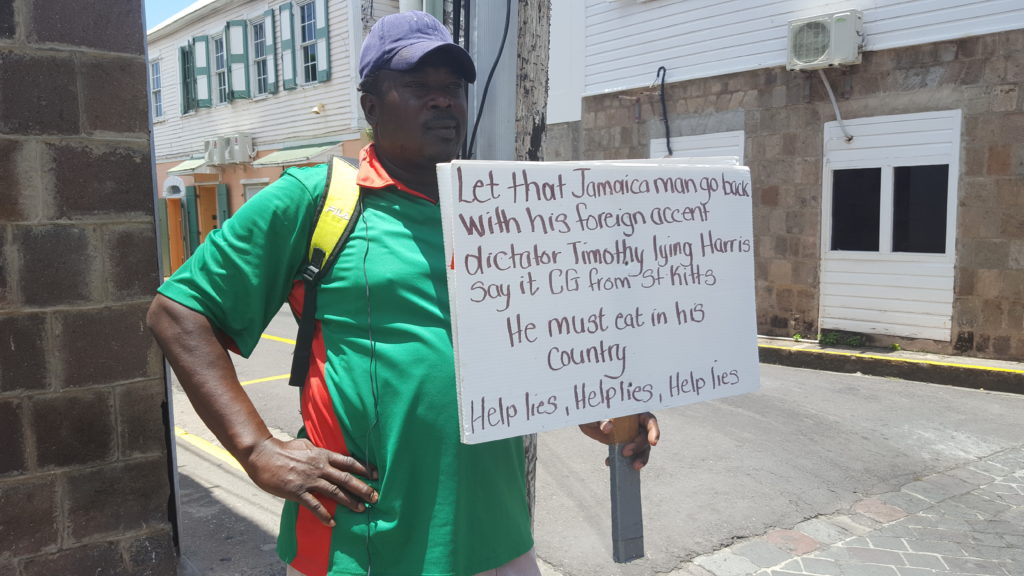 Let that Jamaica man go back
with his foreign accent
dictator Timothy lying Harris
say it CG from St Kitts
He must eat in his
country
Help lies, Help lies, Help lies